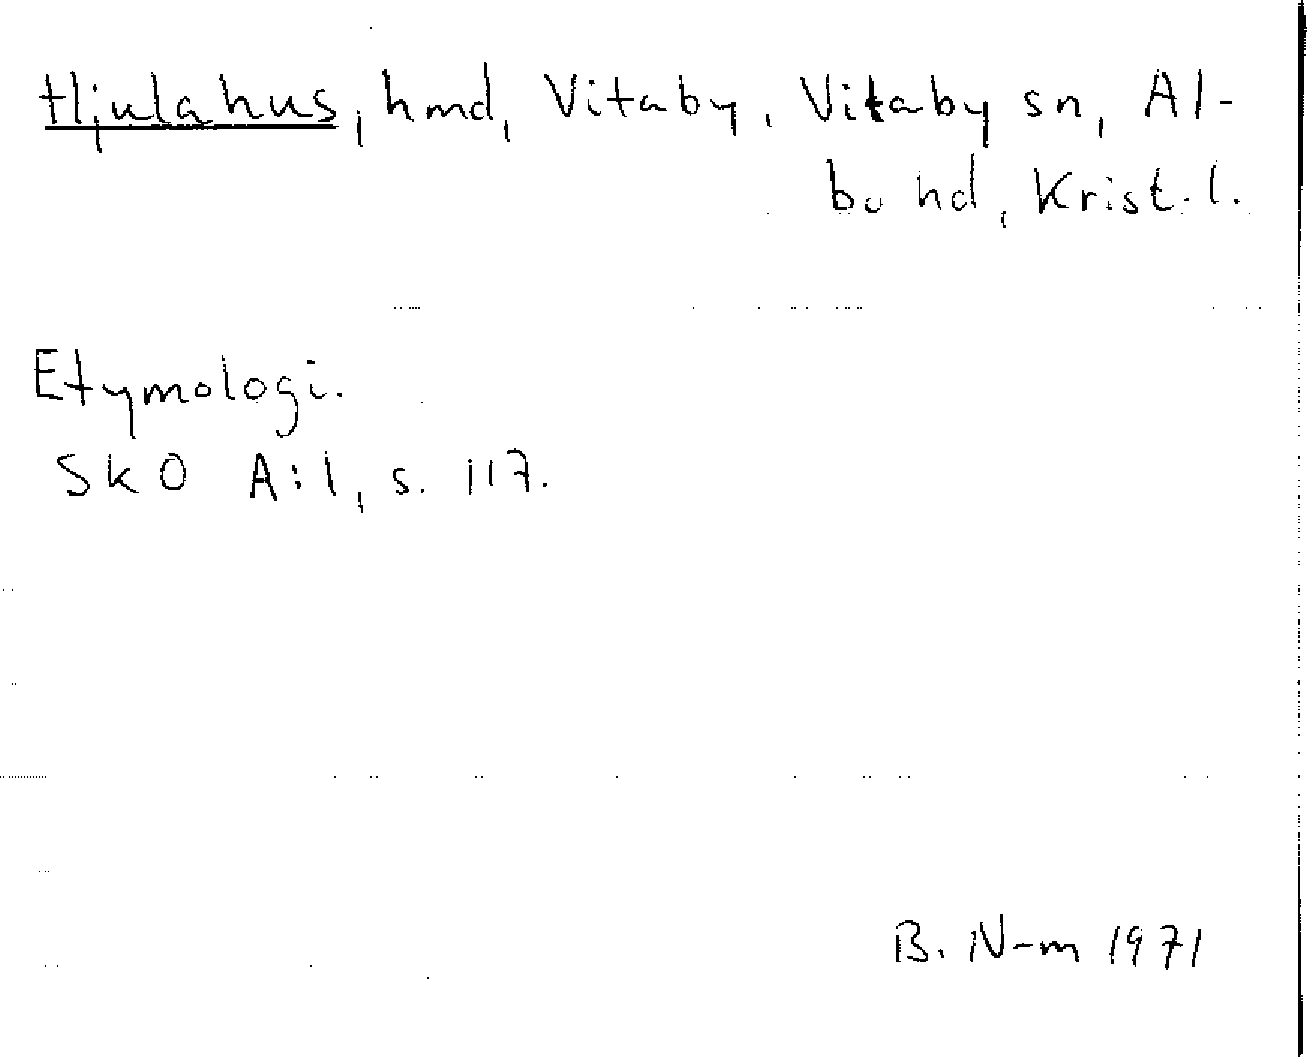 Hjulahus, hmd, Vitaby, Vitaby sn, Al-
bo hd, Krist. l.
Etymologi.
SkO A:1, s. 117.
B. N-m 1971